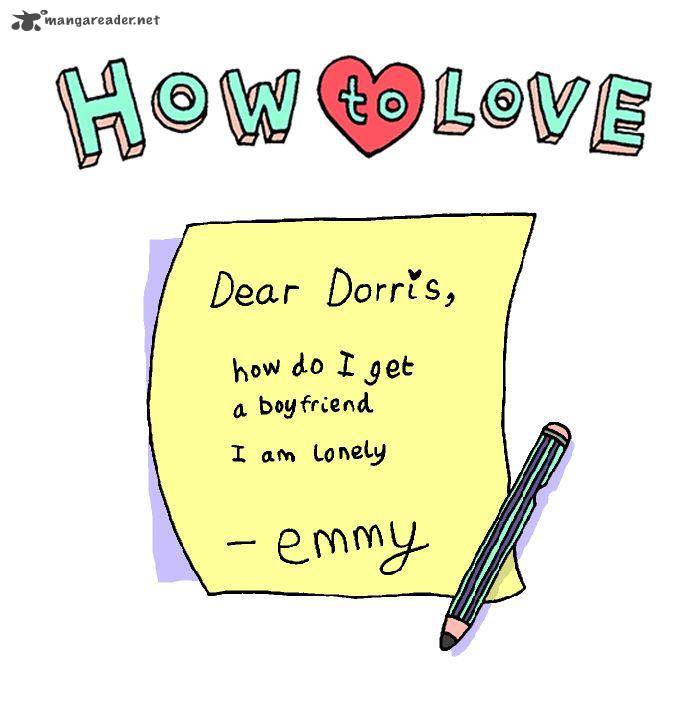 mangareader.net
HOW to LOVE
Dear Dorris,
how do I get
a boyfriend
I am lonely
- emmy